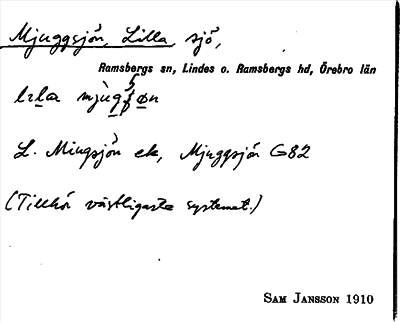 Mjuggsjön, Lilla sjö,
Ramsbergs sn, Lindes o. Ramsbergs hd, Örebro län
L. Miugsjön ek, Mjuggsjön G82
(Tillhör västligaste systemet.)
SAM JANSSON 1910